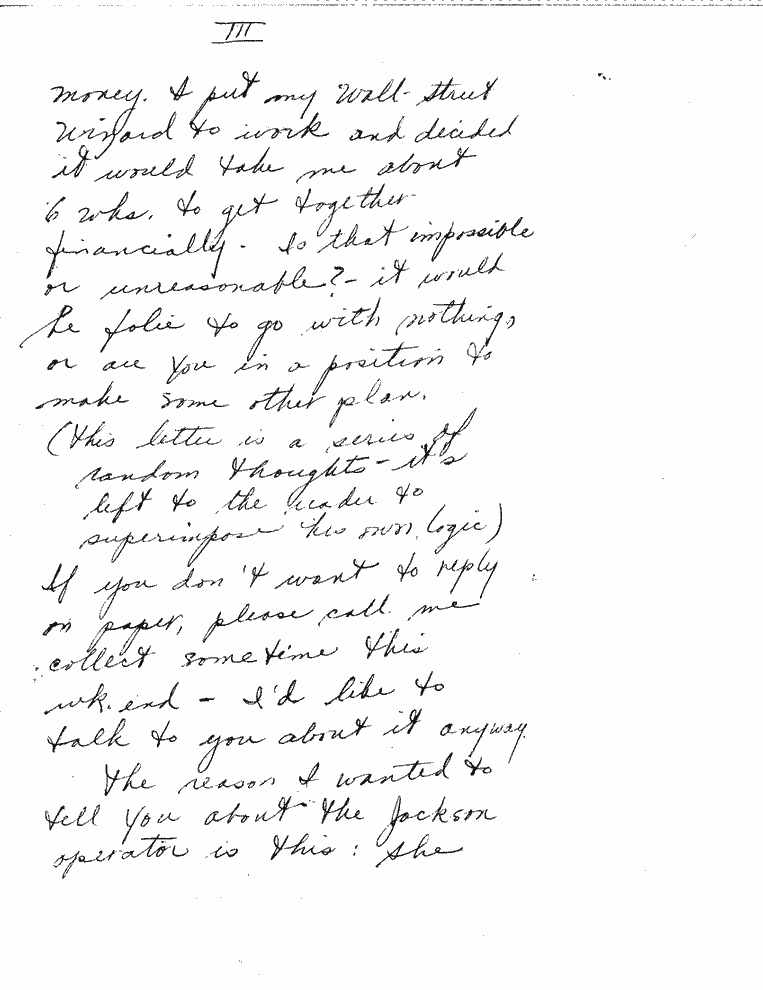 III
money. I put my Wall Street
Wizard to work and decided
it would take me about
6 wks. to get together
financially. Is that impossible
or unreasonable? - it would
be folie to go with nothing,
or are you in a position to
make some other plan.
(this letter is a series of
random thoughts - it's
left to the reader to
superimpose his own logic)
If you don't want to reply
on paper, please call me
collect sometime this
wk. end - I'd like to
talk to you about it anyway.
The reason I wanted to
tell you about the Jackson
operator is this: she